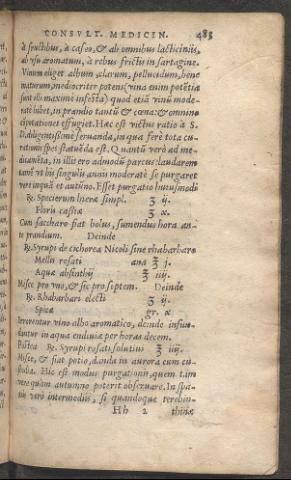 CONSVLT. MEDICIN. 483
à fructibus, à caseo, & ab omnibus lacticiniis,
ab vsu aromatum, à rebus frictis in sartagine.
Vinum eliget album, clarum, pellucidum, bene
maturum, mediocriter potens (vina enim potētia
sunt illi maximè infesta) quod etiā vinū mode-
ratè bibet, in prandio tantū & cœna: & omnino
cōpotationes effugiet. Hæc est victus ratio à
D. diligentissimè seruanda, in qua ferè tota cu-
rationis spes statuēda est. Quantū verò ad me-
dicamēta, in illis ero admodū parcus: laudarem
tamē vt bis singulis annis moderatè se purgaret
vere inquā et autūno. Esset purgatio huiusmodi
℞. Specierum hieræ simpl. ʒ ij.
Floris cassiæ ʒ x.
Cum saccharo fiat bolus, sumendus hora an-
te prandium. Deinde
℞. Syrupi de cichorea Nicoli sine rhabarbaro
Mellis rosati ana ℥ j.
Aquæ absinthij ℥ iiij.
Misce pro vno, & sic pro septem. Deinde
℞. Rhabarbari electi ʒ ij.
Spicæ gr. x
Irrorentur vino albo aromatico, deinde infun-
dantur in aqua endiuiæ per horas decem.
Postea ℞. Syrupi rosati solutiui ℥ iiij.
Misce, & fiat potio, danda in aurora cum cu-
stodia. Hic est modus purgationis, quem tam
vere quàm autumno poterit obseruare. In spa-
tiis verò intermediis, si quandoque terebin-
Hh 2 thinæ